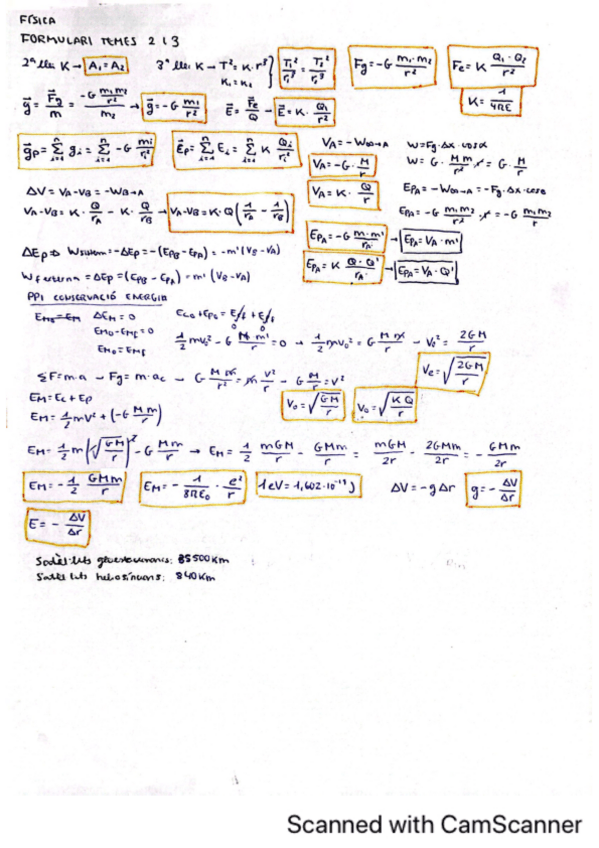 FÍSICA
FORMULARI TEMES 2 I 3
2ª llei K → A₁ = A₂   3ª llei K → T² = K · r³   K₁ = K₂   T₁²/r₁³ = T₂²/r₂³   Fg = -G m₁ · m₂/r²   Fe = K Q₁ · Q₂/r²
K = 1/4πε
g⃗ = F⃗g/m = (-G m₁m₂/r²)/m₂ → g⃗ = -G m₁/r²   E⃗ = F⃗e/Q → E⃗ = K · Q₁/r²
g⃗p = Σ gi = Σ -G mi/ri²   E⃗p = Σ Ei = Σ K Qi/ri²
VA = -W∞→A   W = Fg · Δx · cosα
VA = -G · M/r   W = G · M m/r² · r = G · M/r
VA = K · Q/r   EpA = -W∞→A = -Fg · Δx · cosα
EpA = -G m₁m₂/r² · r = -G m₁m₂/r
ΔV = VA - VB = -WB→A
VA - VB = K · Q/rA - K · Q/rB → VA - VB = K · Q (1/rA - 1/rB)
EpA = -G m · m'/rA → EpA = VA · m'
ΔEp ⇒ Wsistem = -ΔEp = -(EpB - EpA) = -m' (VB - VA)
EpA = K Q · Q'/rA → EpA = VA · Q'
Wf externa = ΔEp = (EpB - EpA) = m' (VB - VA)
PPI CONSERVACIÓ ENERGIA
EM₀ = EM   ΔEM = 0   Ec₀ + Ep₀ = Ecf + Epf
EM₀ - EMf = 0
EM₀ = EMf
1/2 mv₀² - G M m/r = 0 → 1/2 mv₀² = G M m/r → V₀² = 2GM/r
Ve = √(2GM/r)
ΣF = m · a → Fg = m · ac → G M m/r² = m v²/r → G M/r = v²
V₀ = √(GM/r)   V₀ = √(KQ/r)
EM = Ec + Ep
EM = 1/2 m v² + (-G Mm/r)
EM = 1/2 m (√(GM/r))² - G Mm/r → EM = 1/2 mGM/r - GMm/r = mGM/2r - 2GMm/2r = -GMm/2r
EM = -1/2 GMm/r   EM = -1/8πε₀ · e²/r   1 eV = 1,602 · 10⁻¹⁹ J   ΔV = -g Δr   g = -ΔV/Δr
E = -ΔV/Δr
Satèl·lits geoestacionaris: 35500 Km
Satèl·lits heliosíncrons: 840 Km
Scanned with CamScanner